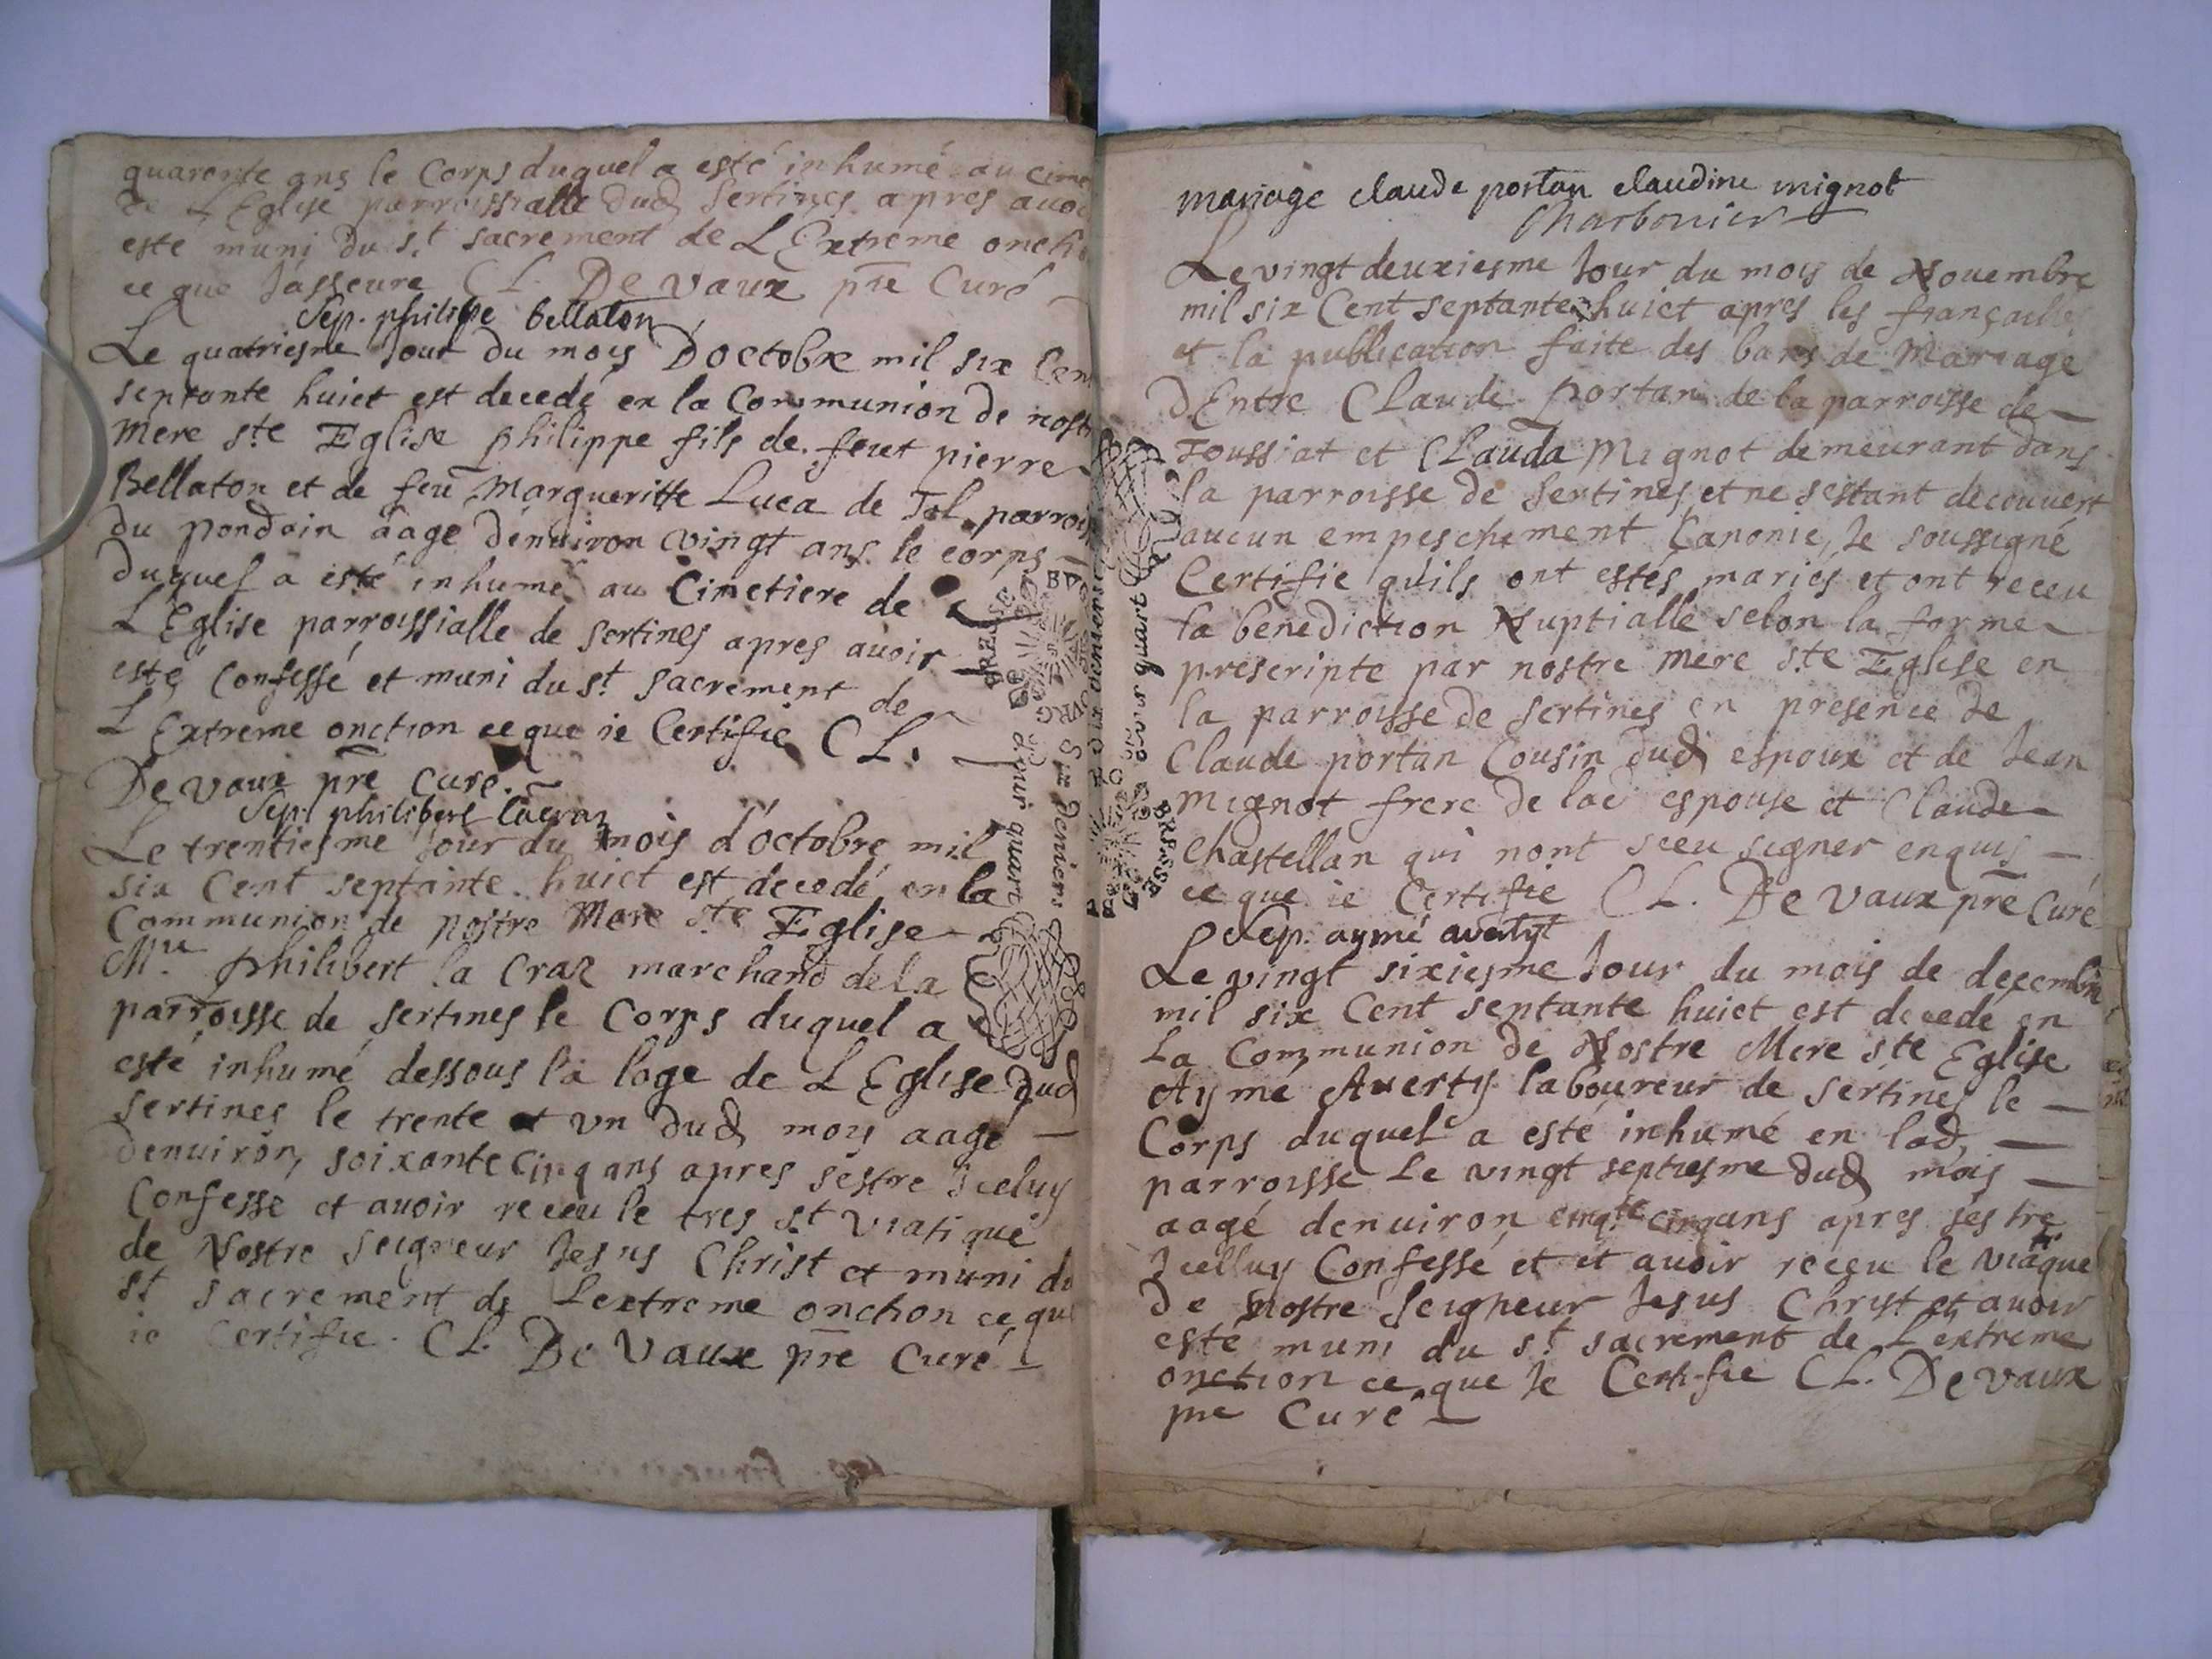 quarente ans le Corps duquel a esté inhumé au cime
de L Eglise parroissialle dud Sertines apres avoi
esté muni du s.t sacrement de L Extreme oncti
ce que Jasseure CL. De vaux pre Curé
Sep. philippe bellaton
Le quatriesme Jour du mois D octobre mil six Cen
septante huict est decedé en la Communion de nost
mere ste Eglise philippe fils de feut pierre
Bellaton et de feu Margueritte Luca de Tol parrois
du pondain aage denuiron vingt ans le corps
duquel a esté inhumé au Cimetiere de
L Eglise parroissialle de sertines apres auoir
esté Confessé et muni du st sacrement de
L Extreme onction ce que ie Certifie CL.
De vaux pre Curé.
Sep. philibert lacraz
Le trentiesme Jour du mois d'octobre mil
six Cent septante huict est decedé en la
Communion de nostre Mere ste Eglise
Mre philibert la Craz marchand de la
parroisse de sertines le Corps duquel a
esté inhumé dessous la loge de L Eglise dud
sertines le trente et vn dud mois aagé
denuiron, soixante cinq ans apres sestre Iceluy
Confessé et auoir receu le tres st viatique
de Nostre Seigneur Jesus Christ et muni du
st sacrement de Lextreme onction ce que
ie Certifie. CL. De Vaux pre Curé
BRESSE
Six deniers
d'eux deniers
mariage claude portan claudine mignot
Charbonier
Le vingt deuxiesme Jour du mois de Nouembre
mil six Cent septante huict apres les françailles
et la publication faite des bans de Mariage
d Entre Claude portan de la parroisse de
Toussiat et Clauda Mignot demeurant dans
la parroisse de Sertines et ne sestant decouvert
aucun empeschement Canonic, Je soussigné
Certifie qu'ils ont estés mariés et ont receu
la benediction Nuptialle selon la forme
prescripte par nostre mere ste Eglise en
la parroisse de sertines en presence de
Claude portan Cousin dud espoux et de Jean
Mignot frere de lad espouse et Claude
Chastellan qui nont sceu signer enquis
ce que ie Certifie CL. De Vaux pre Curé
Sep. aymé avertyt
Le vingt sixiesme Jour du mois de decembre
mil six Cent septante huict est decedé en
La Communion de Nostre Mere ste Eglise
Aymé Averty laboureur de sertines le
Corps duquel a esté inhumé en lad
parroisse Le vingt septiesme dud mois
aagé denuiron cinqte cinq ans apres sestre
Icelluy Confessé et et auoir receu le viaque
de nostre Seigneur Jesus Christ et auoir
esté muni du st sacrement de Lextreme
onction ce que Je Certifie CL. De vaux
pre Curé
BRESSE